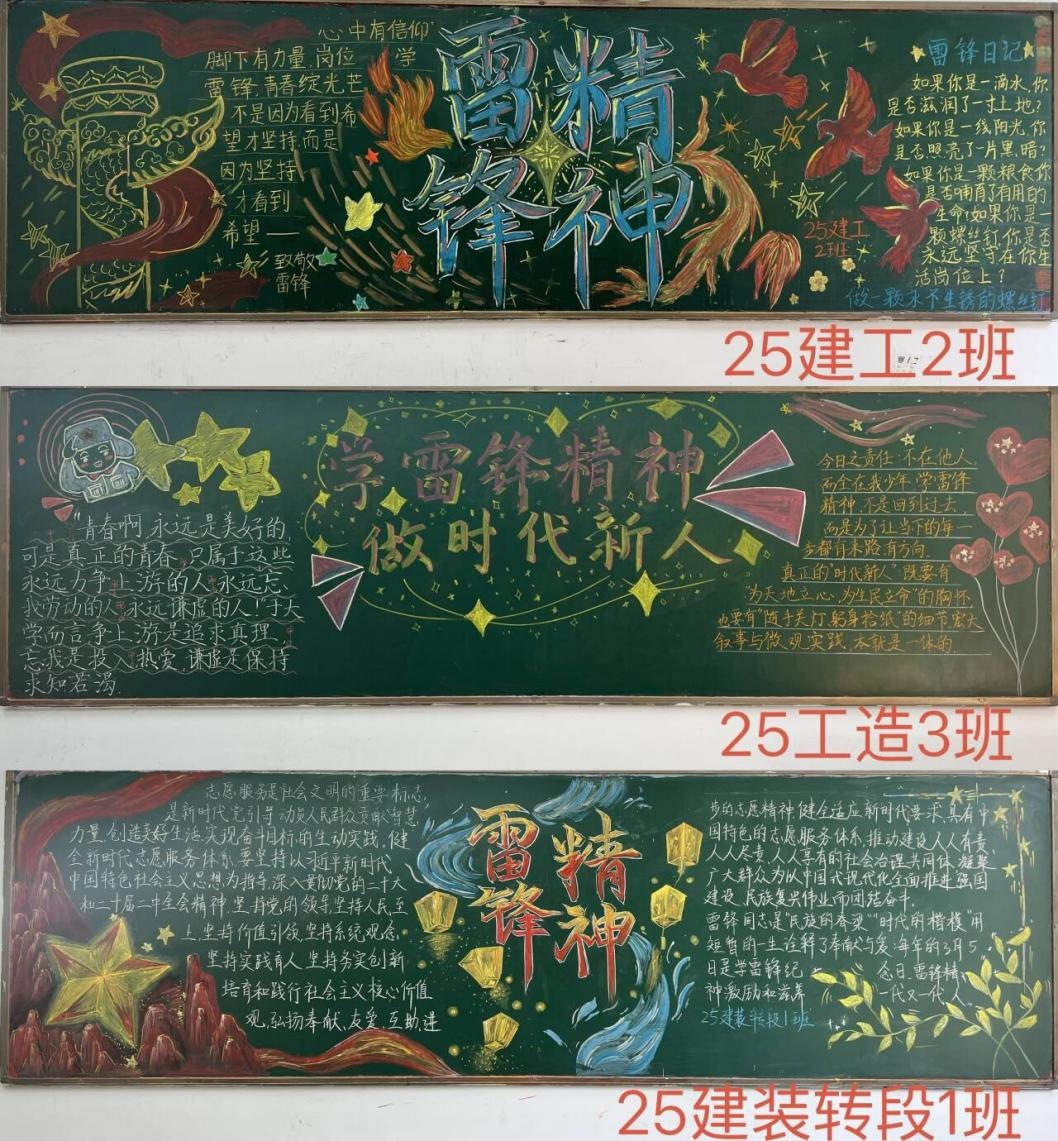 心中有信仰
脚下有力量,岗位学
雷锋,青春绽光芒
不是因为看到希
望才坚持,而是
因为坚持
才看到
希望一
致敬
雷锋
雷锋精神
25建工
2班
雷锋日记
如果你是一滴水,你
是否滋润了一寸土地?
如果你是一线阳光,你
是否照亮了一片黑暗?
如果你是一颗粮食,你
是否哺育了有用的
生命?如果你是一
颗螺丝钉,你是否
永远坚守在你生
活岗位上?
做一颗永不生锈的螺丝钉
25建工2班
学雷锋精神
做时代新人
"青春啊,永远是美好的,
可是真正的青春,只属于这些
永远力争上游的人,永远忘
我劳动的人,永远谦虚的人!"于大
学而言,争上游是追求真理,
忘我是投入热爱,谦虚是保持
求知若渴.
今日之责任,不在他人
而全在我少年,学雷锋
精神,不是回到过去
而是为了让当下的每一
步都有来路,有方向.
真正的"时代新人"既要有
"为天地立心,为生民立命"的胸怀,
也要有"随手关灯,躬身拾纸"的细节,宏大
叙事与微观实践,本就是一体的.
25工造3班
志愿服务是社会文明的重要标志,
是新时代党引导动员人民群众贡献智慧
力量,创造美好生活,实现奋斗目标的生动实践,健
全新时代志愿服务体系,要坚持以习近平新时代
中国特色社会主义思想为指导,深入贯彻党的二十大
和二十届二中全会精神,坚持党的领导,坚持人民至
上,坚持价值引领,坚持系统观念,
坚持实践育人,坚持务实创新
培育和践行社会主义核心价值
观,弘扬奉献,友爱,互助,进
雷锋精神
步的志愿精神,健全适应新时代要求,具有中
国特色的志愿服务体系,推动建设人人有责
人人尽责,人人享有的社会治理共同体,凝聚
广大群众为以中国式现代化全面推进强国
建设,民族复兴伟业而团结奋斗.
雷锋同志是"民族的脊梁""时代的楷模"用
短暂的一生诠释了奉献与爱,每年的3月5
日是学雷锋纪念日,雷锋精
神激励和滋养一代又一代人.
25建装转段1班
25建装转段1班